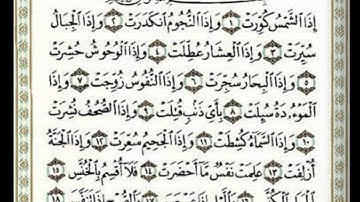 إِذَا ٱلشَّمْسُ كُوِّرَتْ ١ وَإِذَا ٱلنُّجُومُ ٱنكَدَرَتْ ٢ وَإِذَا ٱلْجِبَالُ
سُيِّرَتْ ٣ وَإِذَا ٱلْعِشَارُ عُطِّلَتْ ٤ وَإِذَا ٱلْوُحُوشُ حُشِرَتْ
٥ وَإِذَا ٱلْبِحَارُ سُجِّرَتْ ٦ وَإِذَا ٱلنُّفُوسُ زُوِّجَتْ ٧ وَإِذَا
ٱلْمَوْءُۥدَةُ سُئِلَتْ ٨ بِأَىِّ ذَنۢبٍ قُتِلَتْ ٩ وَإِذَا ٱلصُّحُفُ نُشِرَتْ
١٠ وَإِذَا ٱلسَّمَآءُ كُشِطَتْ ١١ وَإِذَا ٱلْجَحِيمُ سُعِّرَتْ ١٢ وَإِذَا ٱلْجَنَّةُ
أُزْلِفَتْ ١٣ عَلِمَتْ نَفْسٌ مَّآ أَحْضَرَتْ ١٤ فَلَآ أُقْسِمُ بِٱلْخُنَّسِ ١٥